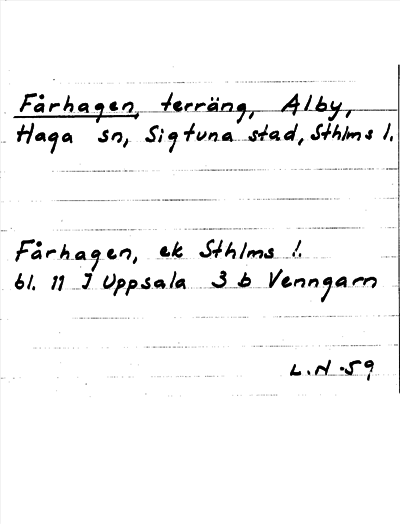 Fårhagen, terräng, Alby,
Haga sn, Sigtuna stad, Sthlms l.
Fårhagen, ek Sthlms l.
bl. 11 I Uppsala 3 b Venngarn
L.N -59